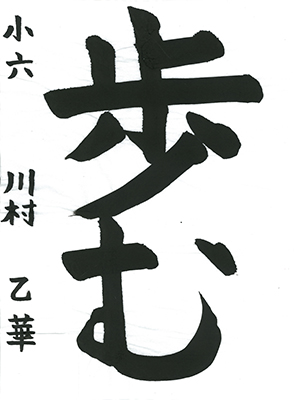 歩む
小六 川村 乙華